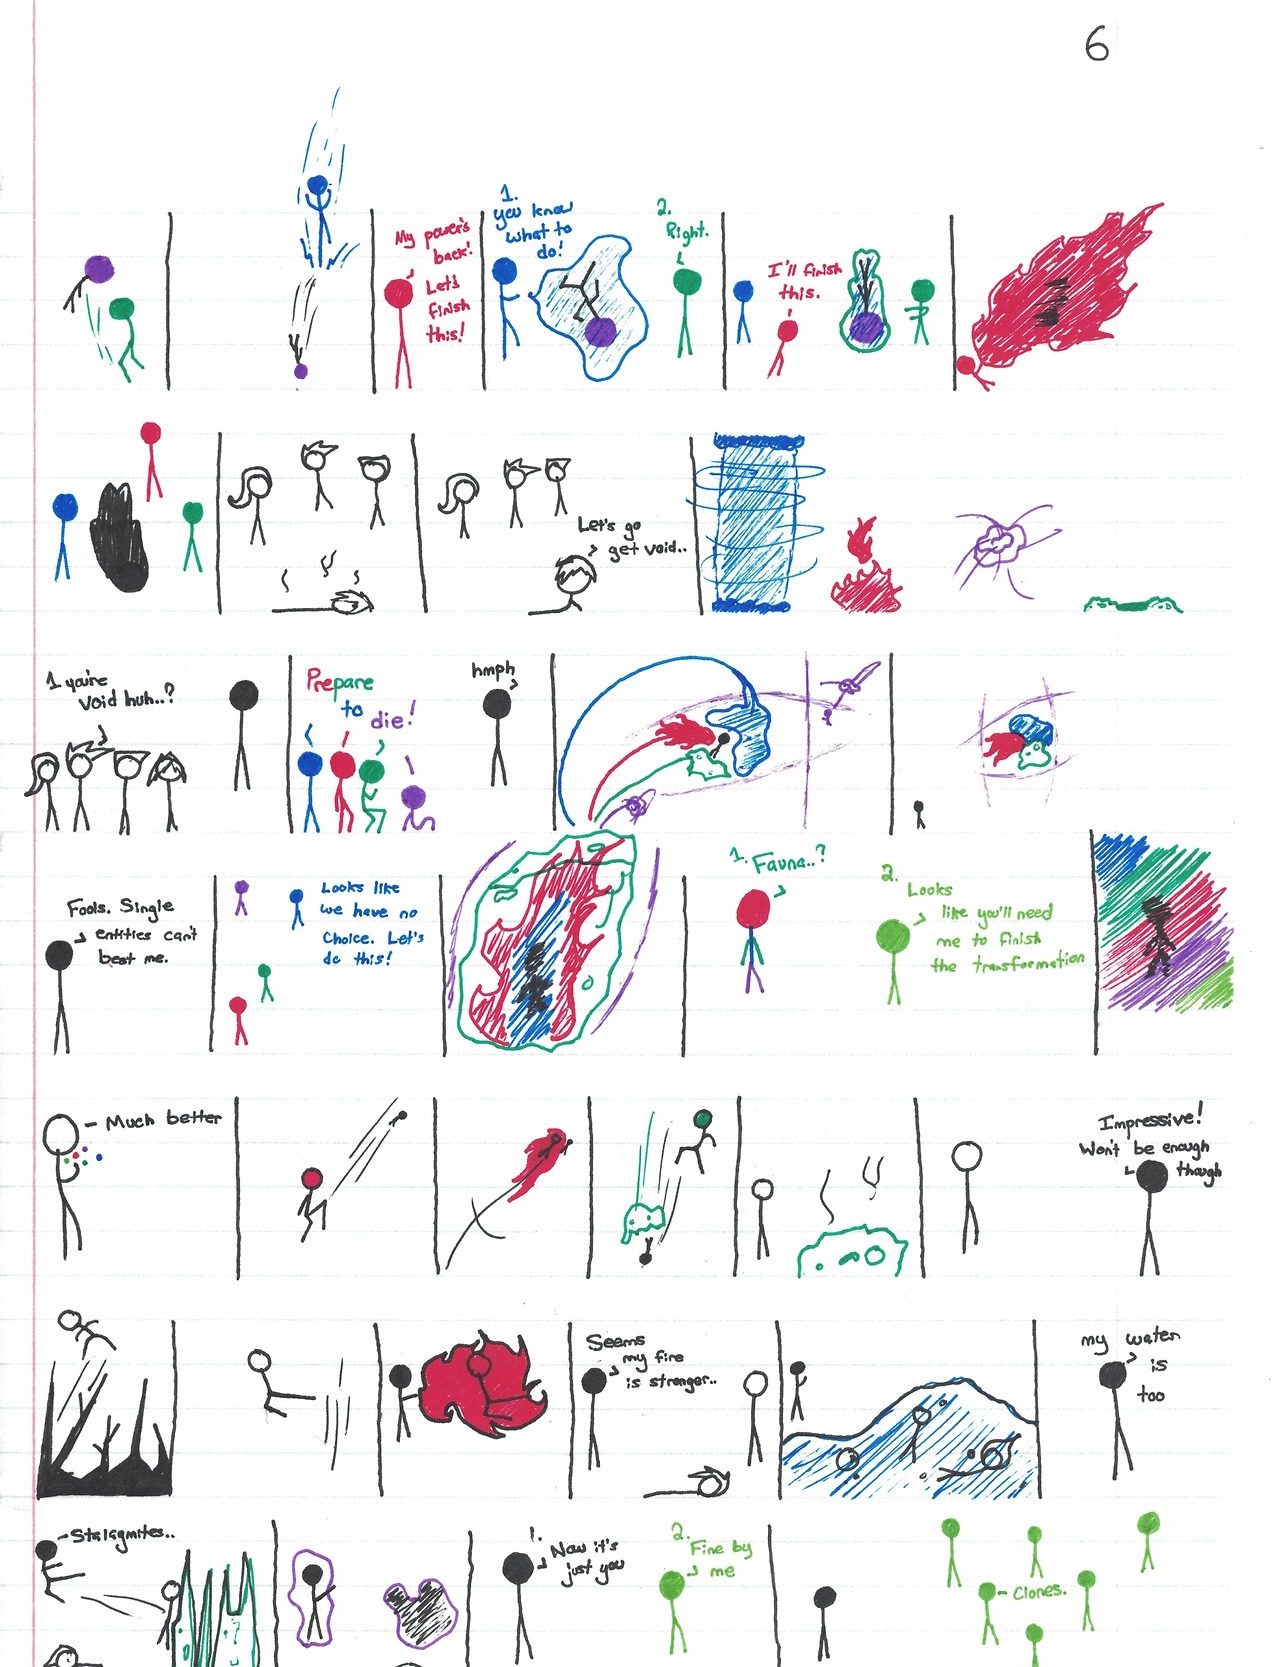 6
My power's
back!
Let's
finish
this!
1.
you know
what to
do!
2.
Right.
I'll finish
this.
Let's go
get void..
1 you're
Void huh..?
Prepare
to
die!
hmph
Fools. Single
entities can't
best me.
Looks like
we have no
Choice. Let's
do this!
1. Fauna..?
2.
Looks
like you'll need
me to finish
the transformation
Much better
Impressive!
Won't be enough
though
Seems
my fire
is stronger..
my water
is
too
Stalagmites..
1.
Now it's
just you
2.
Fine by
me
Clones.